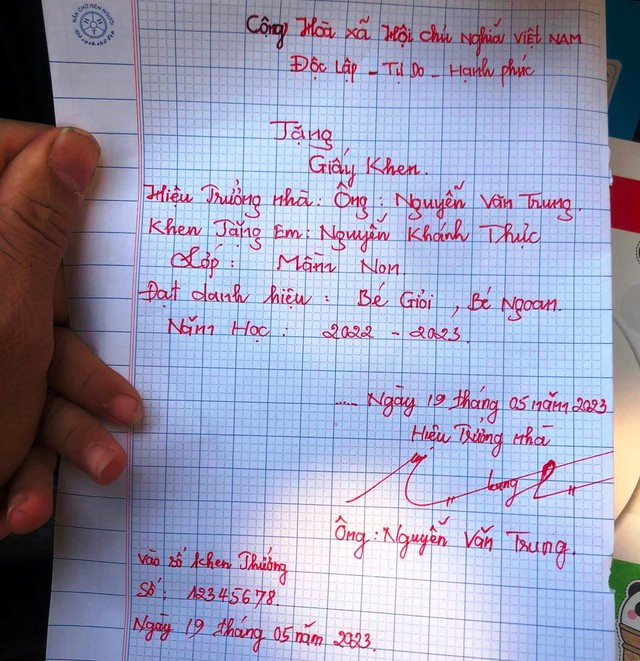 NẮN CHỮ RÈN NGƯỜI
Công Hòa xã Hội chủ nghĩa việt NAM
Độc Lập - Tự Do - Hạnh phúc
Tặng
Giấy Khen.
Hiệu Trưởng nhà: Ông: Nguyễn Văn Trung.
Khen Tặng Em: Nguyễn Khánh Thực
Lớp: Mầm Non.
Đạt danh hiệu: Bé Giỏi, Bé Ngoan.
Năm Học: 2022 - 2023.
..... Ngày 19 tháng 05 năm 2023
Hiệu Trưởng nhà
Ông: Nguyễn Văn Trung.
vào số khen Thưởng
Số: 12345678.
Ngày 19 tháng 05 năm 2023.